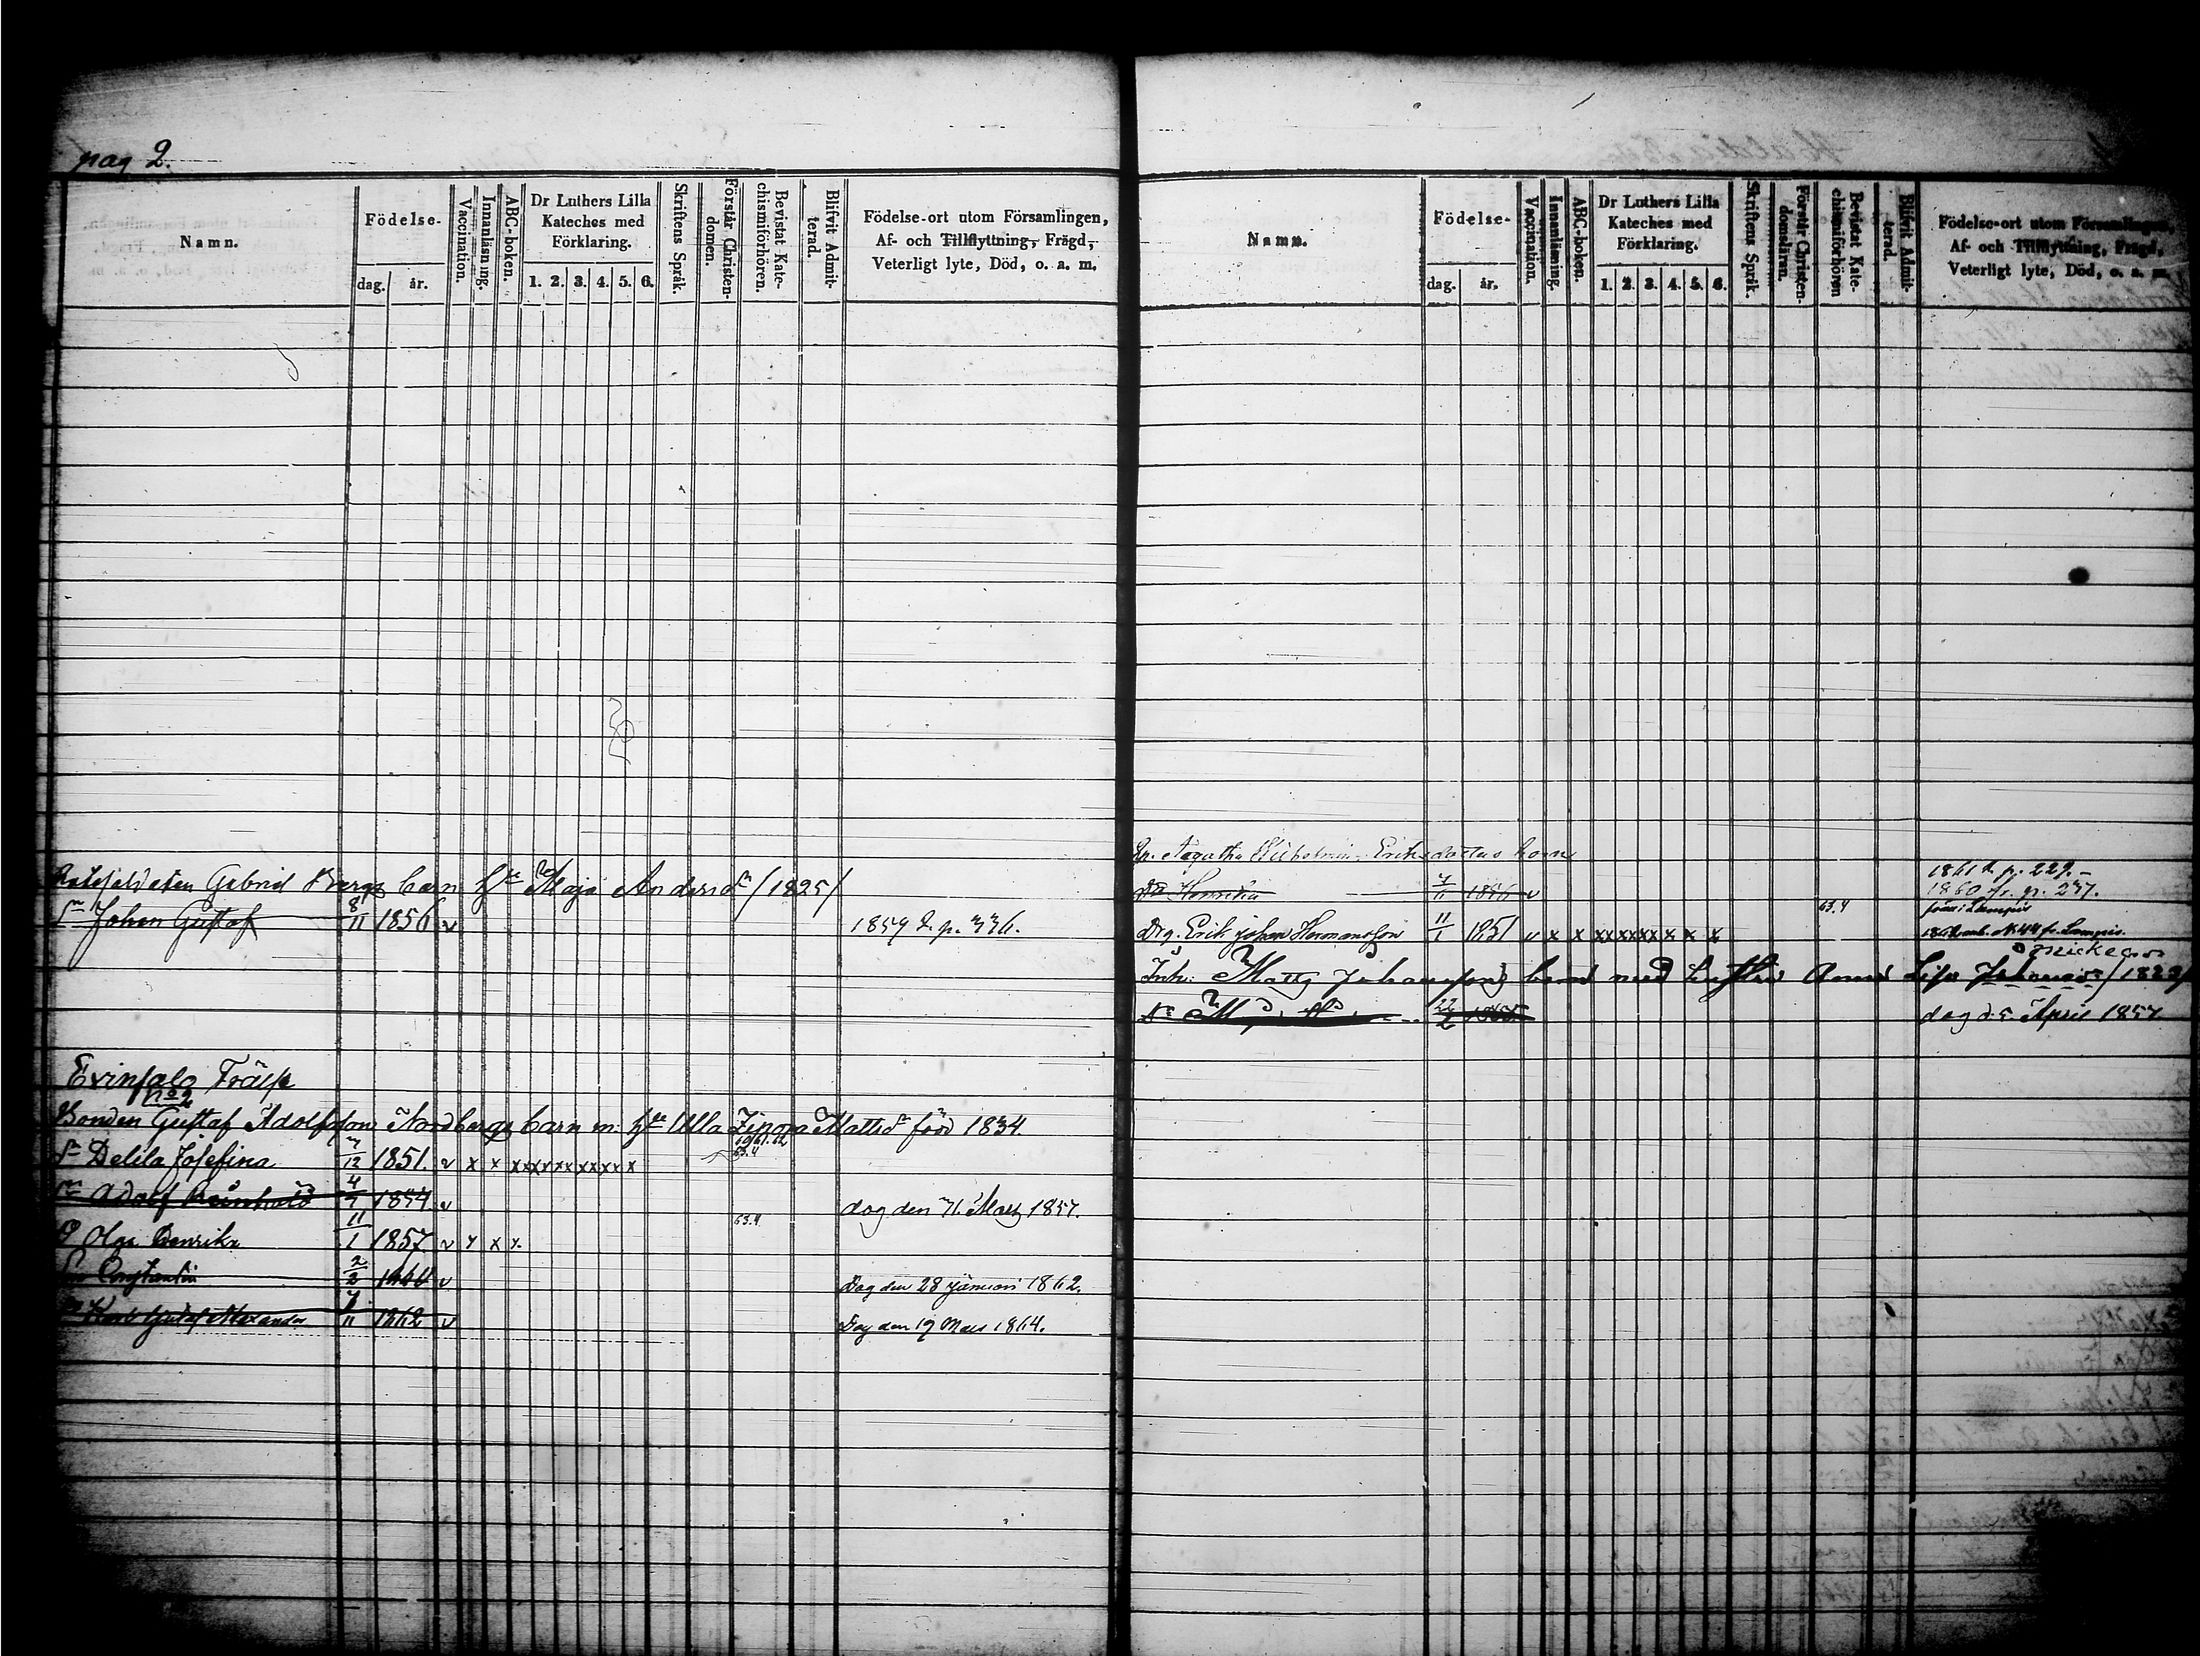 pag 2.
Namn.
Födelse-
dag. år.
Vaccination.
Innanläsning.
ABC-boken.
Dr Luthers Lilla
Kateches med
Förklaring.
1. 2. 3. 4. 5. 6.
Skriftens Språk.
Förstår Christen-
domen.
Bevistat Kate-
chismiförhören.
Blifvit Admit-
terad.
Födelse-ort utom Församlingen,
Af- och Tillflyttning, Frägd,
Veterligt lyte, Död, o. a. m.
Gabriel Bergs barn hu Maja Andersdr (1825)
Sn Johan Gustaf 8/11 1856 v 1859 p. 336.
No 2
Bonden Gustaf Adolfsson Nordbergs barn m. hu Ulla Zipora Mattsdr född 1834.
60.61.62
Dr Delila Josefina 7/12 1851. v x x x x x x x x x x x 63.4
Sn Adolf Reinhold 4/7 1854 v dog den 31. Mars 1857.
D Olga Henrika 11/1 1857. v x x x 63.4
Sn Constantin 2/2 1860 v Dog den 28 Januari 1862.
Sn Karl Gustaf Alexander 7/11 1862 v Dog den 19 Mars 1864.
Namn.
Födelse-
dag. år.
Vaccination.
Innanläsning.
ABC-boken.
Dr Luthers Lilla
Kateches med
Förklaring.
1. 2. 3. 4. 5. 6.
Skriftens Språk.
Förstår Christen-
domsläran.
Bevistat Kate-
chismiförhören
Blifvit Admit-
terad.
Födelse-ort utom Församlingen,
Af- och Tillflyttning, Frägd,
Veterligt lyte, Död, o. a. m.
Agatha Eriksdotters barn
1861 p. 229.
Dr Henrika 1856 v 1860 fr. p. 237.
Drg. Erik Johan Hermansson 11/1 1851 v x x x x x x x x x x 63.4 fr. Lampis.
Inh. Matts Johanssons barn med hustru Anna Lisa
dog d. 5 April 1857